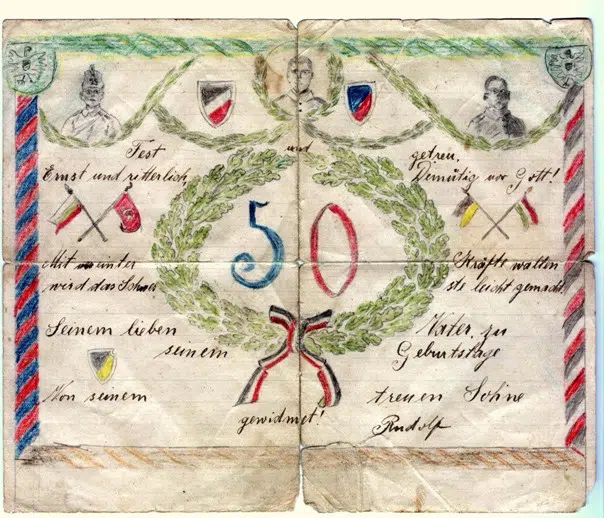 Fest und getreu,
Ernst und ritterlich, Demütig vor Gott!
50
Mit vereinter Kräfte walten
wird das Schwer ste leicht gemacht!
Seinem lieben Vater zu
seinem Geburtstage
Von seinem treuen Sohne
gewidmet! Rudolf